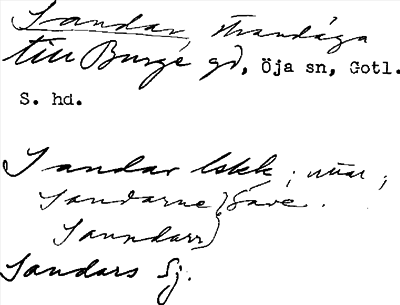 Sandar, strandäga
till Burge gd, Öja sn, Gotl.
S. hd.
Sandar lskk; uttal;
Sandarne } Save.
Sanndarr }
Sandars Sj.